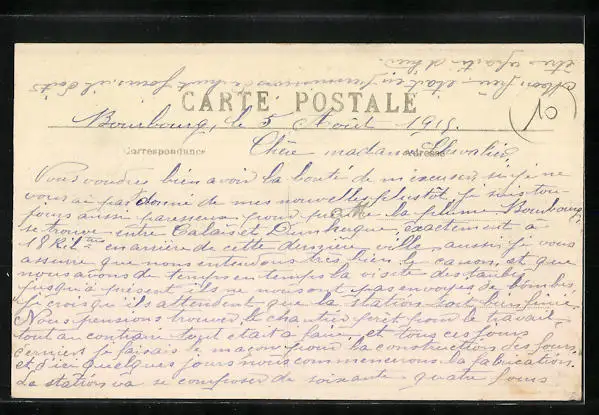 Mon frère était en permission de huit jours, il doit
être reparti d'hier.
CARTE POSTALE
Bourbourg, le 5 Août 1915.
Correspondance
Adresse
Chère madame Chevalier
Vous voudrez bien avoir la bonté de m'excuser si je ne
vous ai pas donné de mes nouvelles plustôt, je suis tou-
jours aussi paresseux pour prendre la plume. Bourbourg
se trouve entre Calais et Dunkerque, exactement à
18 Kil. en arrière de cette dernière ville, aussi je vous
assure que nous entendons très bien le canon, et que
nous avons de temps en temps la visite des taubes
jusqu'à présent ils ne nous ont pas envoyés de bombes,
je crois qu'ils attendent que la station soit bien finie.
Nous pensions trouver le chantier prêt pour le travail
tout au contraire tout était à faire et tous ces jours
derniers je faisais le maçon pour la construction des fours
et d'ici quelques jours nous commencerons la fabrication.
La station va se composer de soixante quatre fours
10